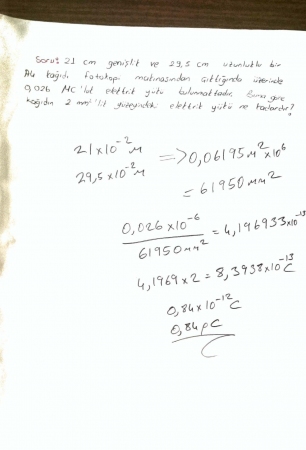 Soru: 21 cm genişlik ve 29,5 cm uzunluklu bir
A4 kağıdı fotokopi makinasından çıktığında üzerinde
0,026 MC'luk elektrik yükü bulunmaktadır. Buna göre
kağıdın 2 mm²'lik yüzeyindeki elektrik yükü ne kadardır?
21x10⁻² M
29,5x10⁻² M => 0,06195 M² x10⁶
= 61950 mm²
0,026 x10⁻⁶
61950 mm² = 4,196933x10⁻¹³
4,1969 x 2 = 8,3938x10⁻¹³ C
0,84x10⁻¹² C
0,84 pC